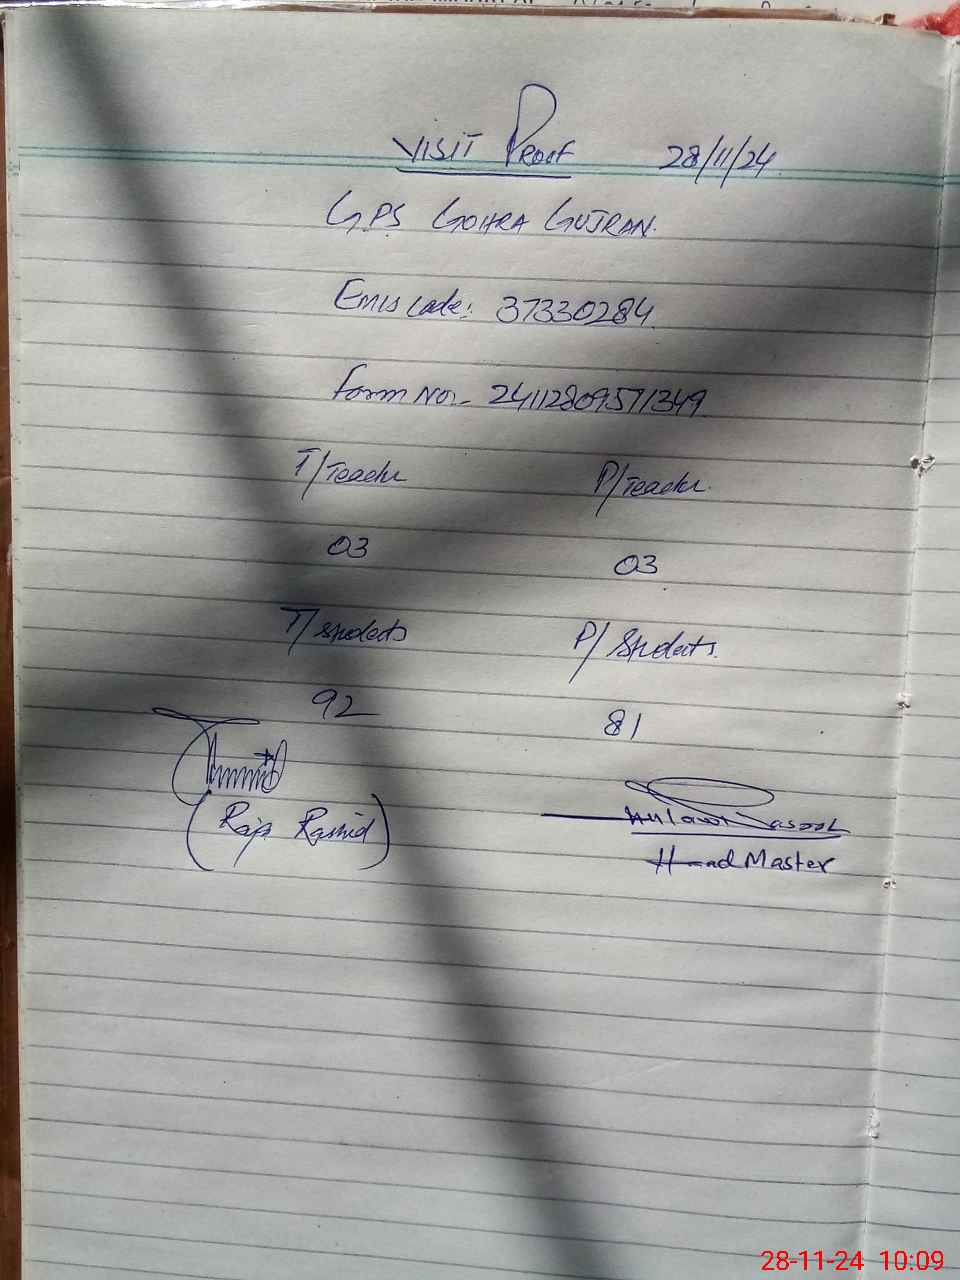 VISIT PROOF 28/11/24
GPS GOHRA GUJRAN.
Emis Code: 37330284
Form No:- 24112809571349
T/Teacher P/Teacher
03 03
T/Students P/Students
92 81
(Raja Rashid)
Rasool
Head Master
28-11-24 10:09